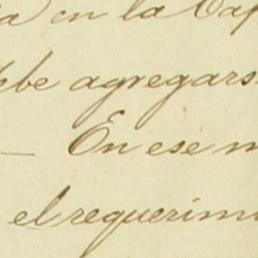 en la Cap
debe agregars
— En ese m
el requerimi